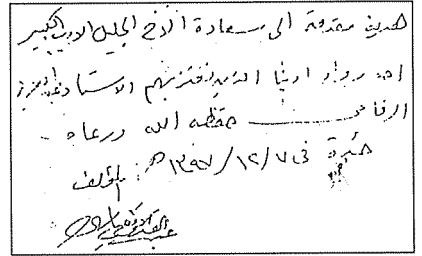 هدية مقدمة الى سعادة الأخ الجليل الاديب الكبير
احد رواد ادبنا الذين نعتز بهم الاستاذ عبدالعزيز
الرفاعي حفظه الله ورعاه
في ١٣٩٧/١٢/٧ه المؤلف